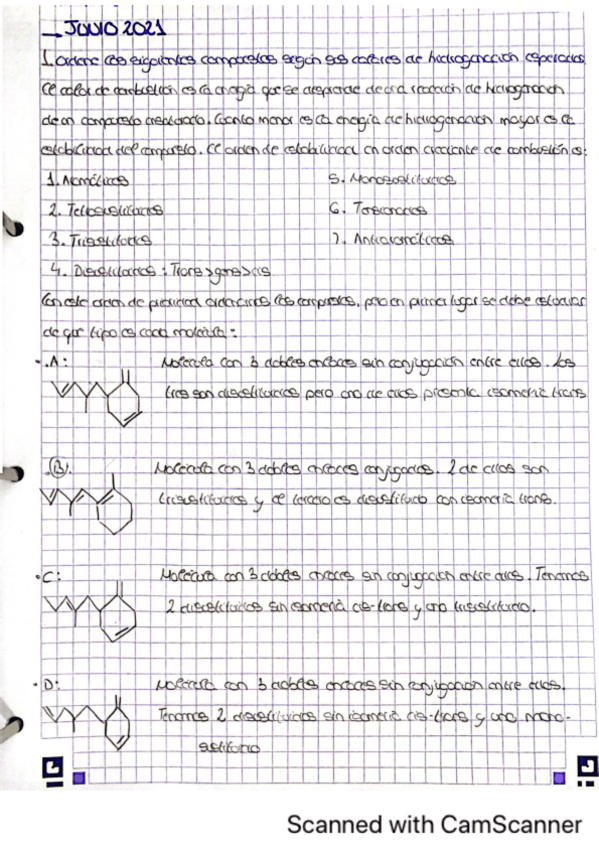 _ JULIO 2021
1. Ordene los siguientes compuestos según sus calores de hidrogenación esperados
El calor de combustión es la energía que se desprende de una reacción de hidrogenación
de un compuesto insaturado. Cuanto menor es la energía de hidrogenación mayor es la
estabilidad del compuesto. El orden de estabilidad en orden creciente de combustión es:
1. Aromáticos
5. Monosustituidos
2. Tetrasustituidos
6. Tensionados
3. Trisustituidos
7. Antiaromáticos
4. Disustituidos: Trans > gem > cis
Con este orden de prioridad ordenamos los compuestos, pero en primer lugar se debe estudiar
de que tipo es cada molécula:
• A:
Molécula con 3 dobles enlaces sin conjugación entre ellos. Los
tres son disustituidos pero uno de ellos presenta isomería trans
B:
Molécula con 3 dobles enlaces conjugados. 2 de ellos son
trisustituidos y el tercero es disustituido con isomería trans.
• C:
Molécula con 3 dobles enlaces sin conjugación entre ellos. Tenemos
2 disustituidos sin isomería cis-trans y uno trisustituido.
• D:
Molécula con 3 dobles enlaces sin conjugación entre ellos.
Tenemos 2 disustituidos sin isomería cis-trans y uno mono-
sustituido
Scanned with CamScanner